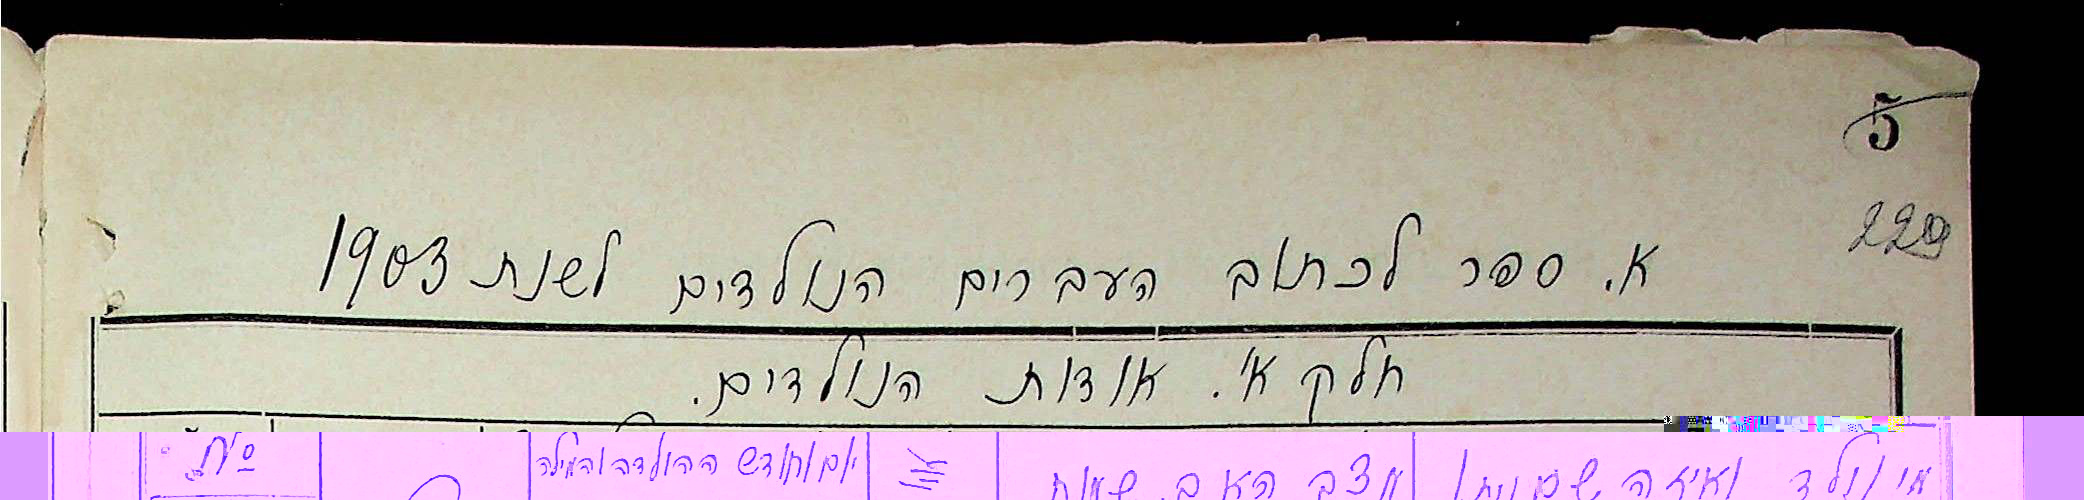 5
229
א. ספר לכתוב העברים הנולדים לשנת 1903
חלק א'. אודות הנולדים.
מי נולד ואיזה שם ניתן לו
מצב האב, שמות
יום וחודש ההולדה והמילה